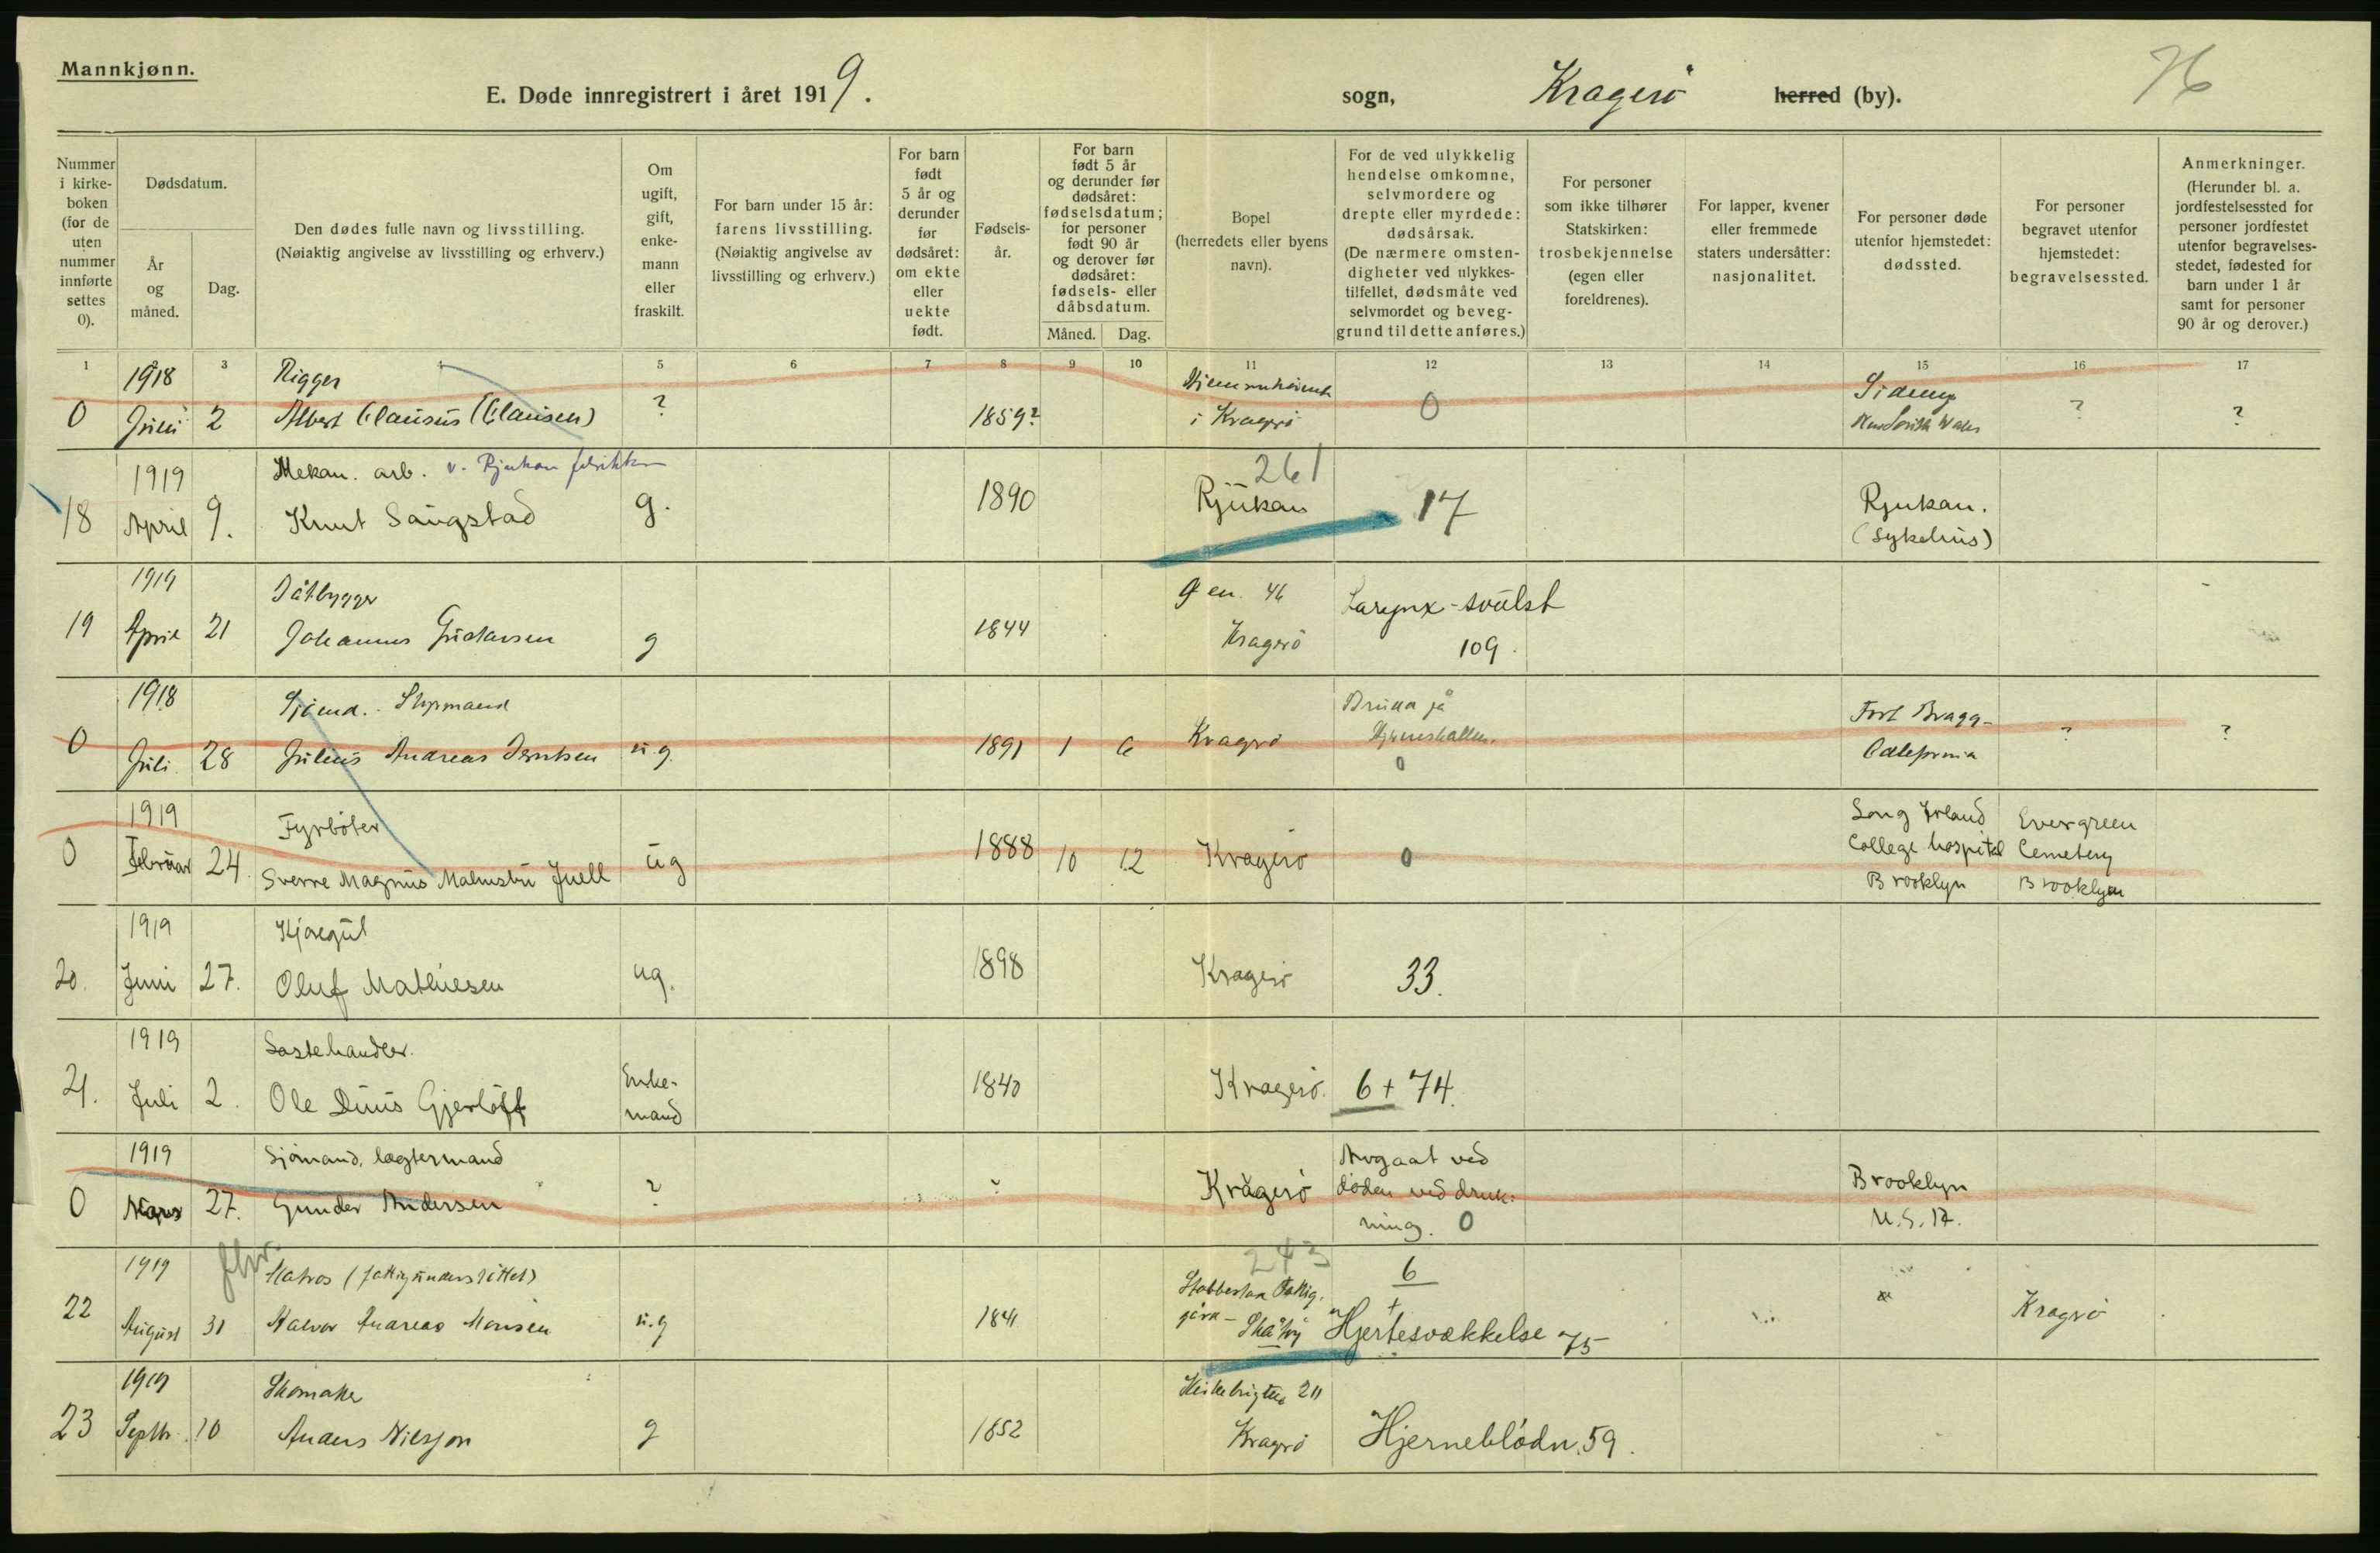 Mannkjønn.
E. Døde innregistrert i året 1919.
sogn, Kragerö herred (by).
76
Nummer i kirke-boken (for de uten nummer innførte settes 0).
Dødsdatum.
År og måned.
Dag.
Den dødes fulle navn og livsstilling.
(Nøiaktig angivelse av livsstilling og erhverv.)
Om ugift, gift, enke-mann eller fraskilt.
For barn under 15 år: farens livsstilling.
(Nøiaktig angivelse av livsstilling og erhverv.)
For barn født 5 år og derunder før dødsåret: om ekte eller uekte født.
Fødsels-år.
For barn født 5 år og derunder før dødsåret: fødselsdatum; for personer født 90 år og derover før dødsåret: fødsels- eller dåbsdatum.
Måned. Dag.
Bopel (herredets eller byens navn).
For de ved ulykkelig hendelse omkomne, selvmordere og drepte eller myrdede: dødsårsak.
(De nærmere omsten-digheter ved ulykkes-tilfellet, dødsmåte ved selvmordet og beveg-grund til dette anføres.)
For personer som ikke tilhører Statskirken: trosbekjennelse (egen eller foreldrenes).
For lapper, kvener eller fremmede staters undersåtter: nasjonalitet.
For personer døde utenfor hjemstedet: dødssted.
For personer begravet utenfor hjemstedet: begravelsessted.
Anmerkninger.
(Herunder bl. a. jordfestelsessted for personer jordfestet utenfor begravelses-stedet, fødested for barn under 1 år samt for personer 90 år og derover.)
1 3 4 5 6 7 8 9 10 11 12 13 14 15 16 17
1918 Rigger Sidney
0 Juni 2 Albert Clausus (Clausen) ? 1859? i Kragerö 0 New South Wales ? ?
1919 Mekan. arb. v. Rjukan fabrikker 261
18 April 9. Knut Saugstad g. 1890 Rjukan 17 Rjukan.
(Sykehus)
1919 Båtbygger Gen. 46 Larynx-svulst
19 April 21 Johannes Gustavsen g 1844 Kragerö 109.
1918 Sjömd. - Styrmand Fort Bragg-
0 Juli 28 Julius Andreas Berntsen u.g. 1891 1 6 Kragerö 0 California ? ?
1919 Fyrböter Long Island Evergreen
0 Februar 24. Sverre Magnus Juell ug 1888 10 12 Kragerö 0 College hospital Cemetery
Brooklyn Brooklyn
1919
20. Juni 27. Oluf Mathiesen ug. 1898 Kragerö 33.
1919 Lastehandler.
21. Juli 2. Ole Dinis Gjerlöff Enke-mand 1840 Kragerö. 6 + 74.
1919 Sjömand, lægtermand Avgaat ved
0 Mars 27. Gunder Andersen ? ? Kragerö döden ved druk- Brooklyn
ning. 0 U.S.A.
1919 Matros (fattigunderstöttet) 243 Stabbestad Fattig- 6
22 August 31 Halvor Andreas Monsen u.g 1841 gård - Skåtöy + Hjertesvækkelse 75 Kragerö
1919 Skomaker 211
23 Septbr. 10 Anders Nilsson g 1852 Kragerö Hjerneblödn. 59.